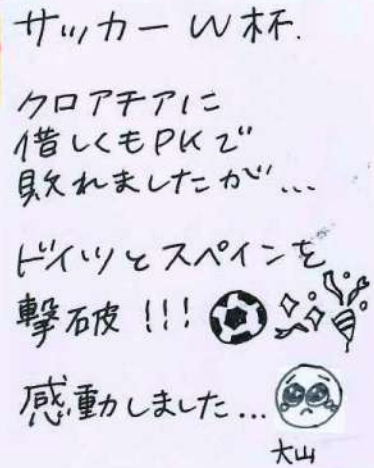 サッカーW杯.
クロアチアに
借しくもPKで
敗れましたが...
ドイツとスペインを
撃破!!!
感動しました...
大山